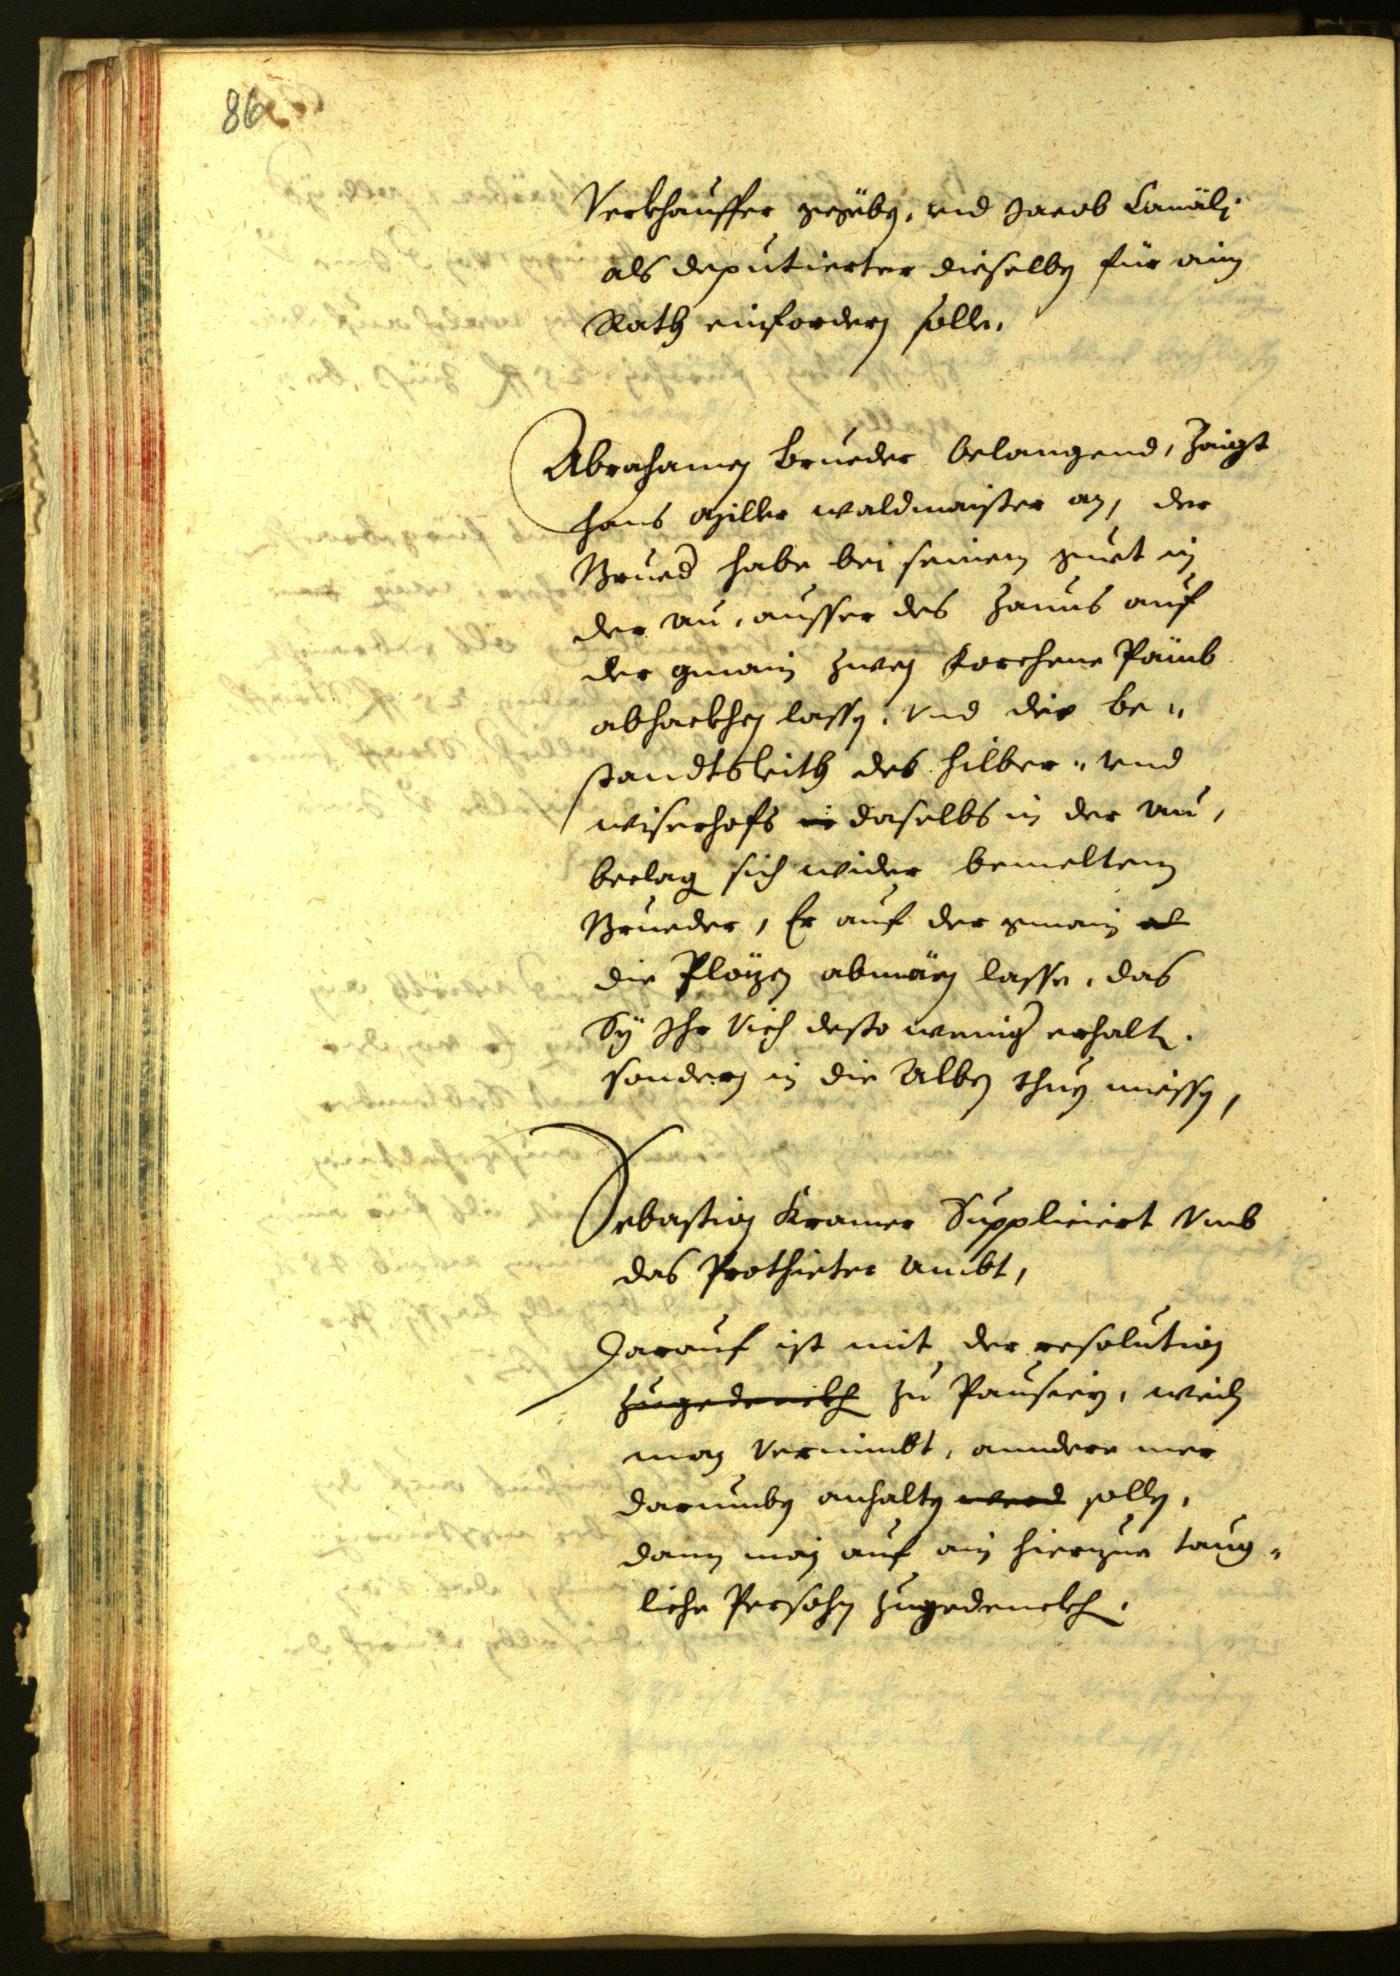 86
Verkhauffer gegeben, vnd Jacob Canäli
als deputierter dieselben für ain
Rath einfordern solle.
Abrahamen Brueder belangend, zaigt
Hans Miller waldmaister an, der
Brueder habe bei seinem guet in
der au, ausser des zauns auf
der gmain zwen Forchene Päumb
abhackhen lassen, vnd die be-
standtsleith des Hilber- vnd
wiserhofs in daselbs in der au,
beclag sich wider bemeltem
Brueder, Er auf der gmain al
die Plözen abmäen lasse, das
Sÿ Ihr Vich desto weniger erhalten.
sondern in die Alben thuen miessen,
Sebastian Kramer Suppliciert Vmb
das Prothieter Ambt,
Darauf ist mit der resolution
zugedenckhen zu Pausiern, weiln
man vernimbt, anndere mer
darumben anhalten werd sollen,
dann man auf ain hierzue taug-
liche Persohn zugedenckhen.